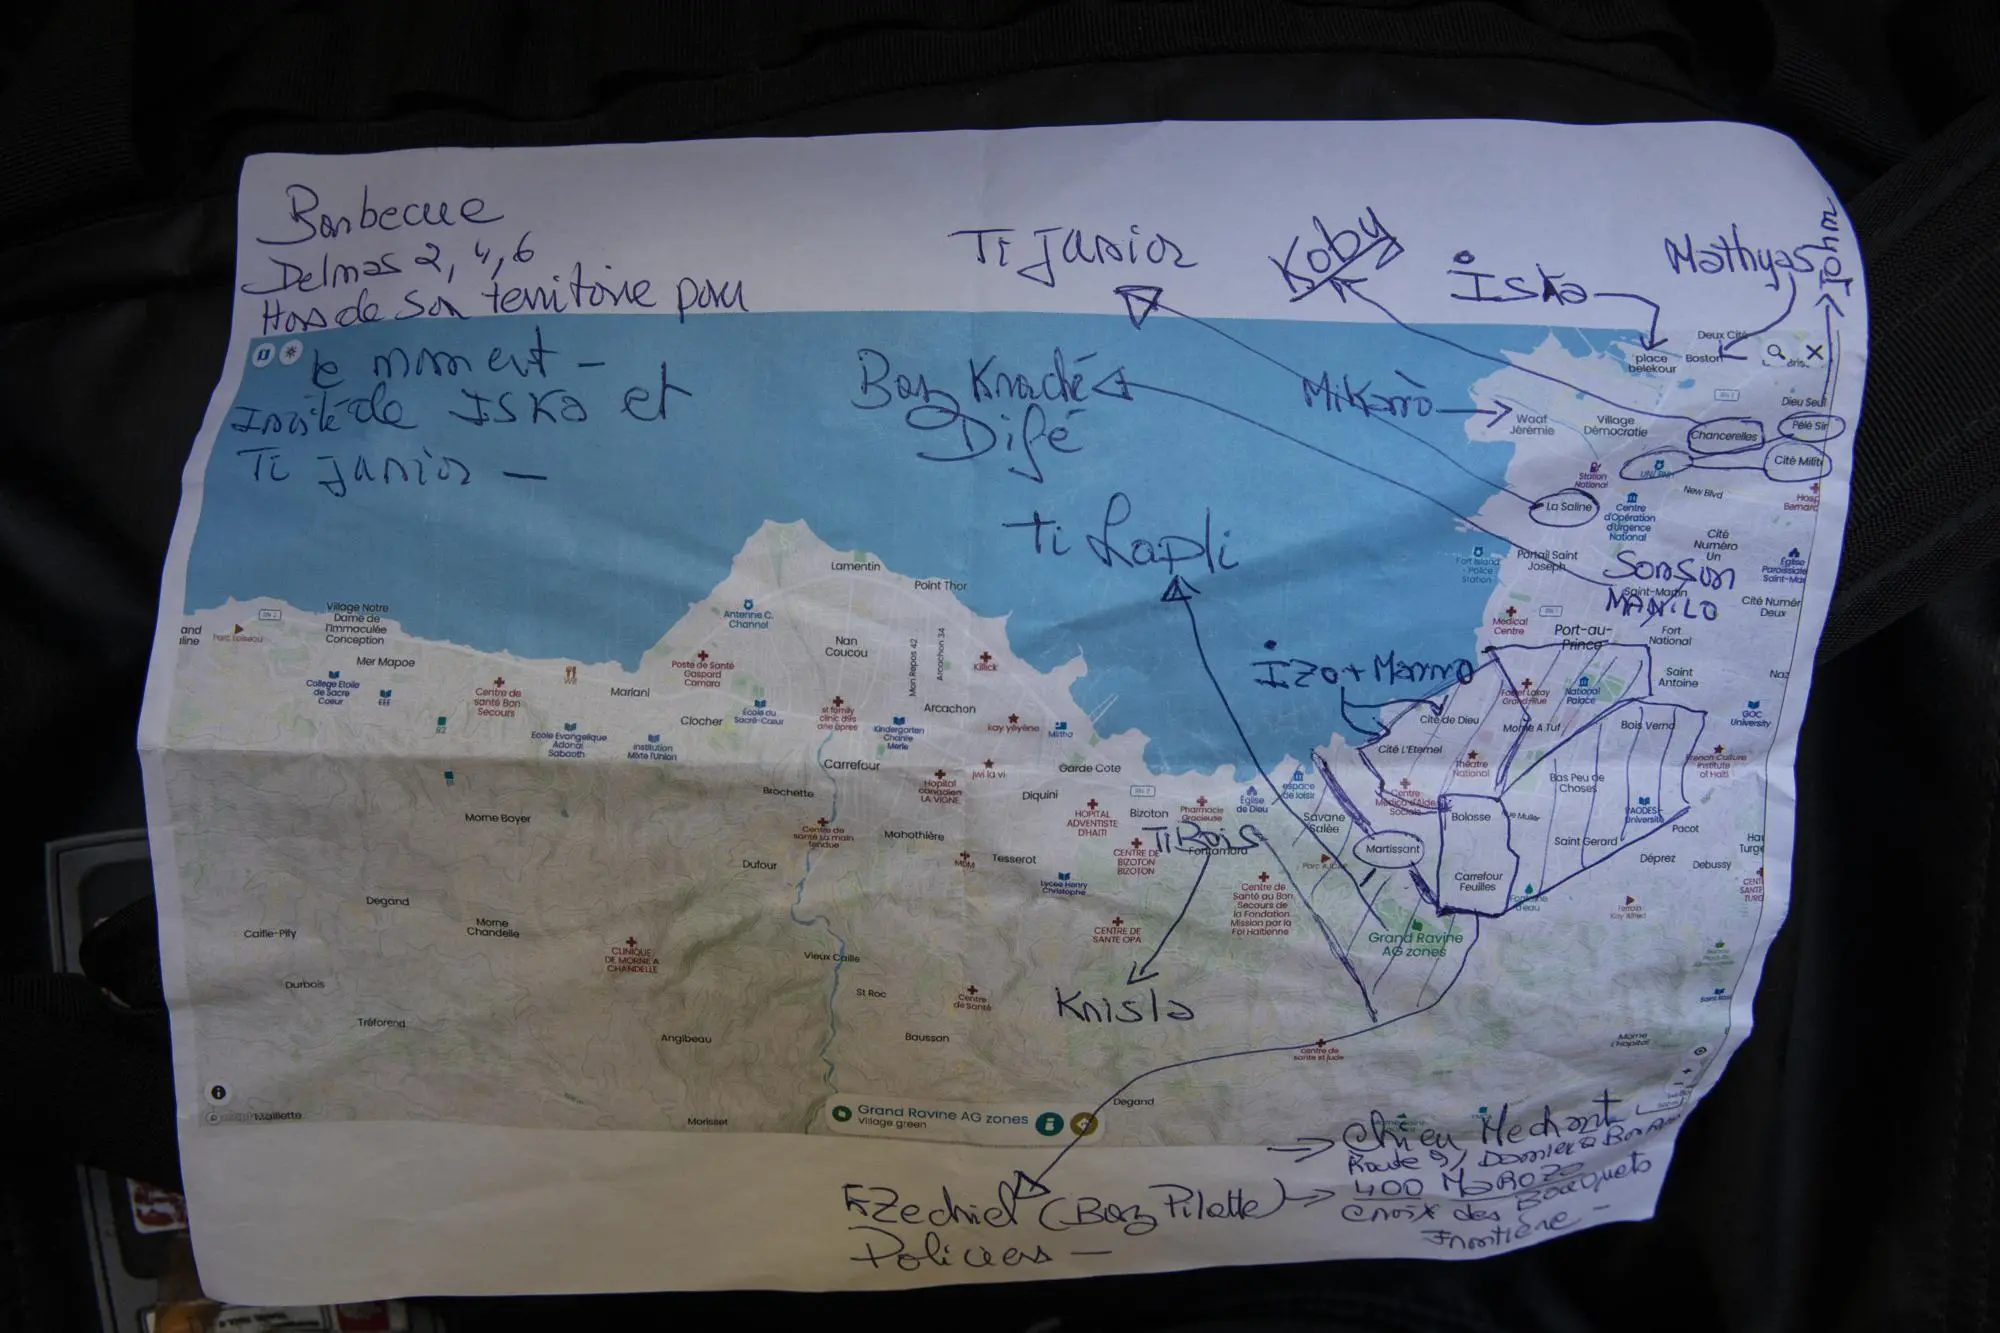 Barbecue
Delmas 2, 4, 6
Hors de son territoire pour
le moment -
Invité de Iska et
Ti Junior -
Ti Junior
Koby
Iska
Mathyas
John
Baz Kraché
Difé
Mikanò
Ti Lapli
Sonson
Manilo
Izo + Manno
Ti Bois
Krisla
Ezechiel (Baz Pilate)
Policiers -
Chien Mechant
Route 9,
400 Marozo
Croix des Bouquets
Frontière -
Deux Cité
place
belekour
Boston
Dieu Seul
Waaf
Jérémie
Village
Démocratie
Chancerelles
Pélé Sim
Cité Milit
Station
National
New Blvd
La Saline
Centre
d'Opération
d'Urgence
National
Hosp
Bernard
Cité
Numéro
Un
Fort Island
- Police
Station
Portail Saint
Joseph
Saint-Martin
Eglise
Paroissiale
Saint-Mar
Cité Numér
Deux
Medical
Centre
Port-au-
Prince
Fort
National
Saint
Antoine
Naz
National
Palace
Cité de Dieu
Morne A Tuf
Bois Verna
GOC
University
Cité L'Eternel
Théatre
National
French Culture
Institute
of Haiti
Bas Peu de
Choses
Centre
Médico d'Aide
Sociale
Bolosse
Rue Muller
Saint Gerard
Pacot
Martissant
Carrefour
Feuilles
Déprez
Debussy
Savane
Salée
espace
de loisir
Eglise
de Dieu
Grand Ravine
AG zones
Lamentin
Point Thor
Antenne C.
Channel
Village Notre
Dame de
l'Immaculée
Conception
RN 2
Parc Loiseau
Mer Mapoe
Nan
Coucou
Mon Repos 42
Arcachon 34
Killick
Poste de Santé
Gaspard
Camara
College Etoile
de Sacre
Coeur
EEE
Centre de
santé Bon
Secours
Mariani
Clocher
Ecole du
Sacré-Coeur
st family
clinic drs
ane epres
Kindergarten
Chante
Merle
Arcachon
kay yéyène
Mitha
Ecole Evangelique
Adonai
Sabaoth
Institution
Mixte l'Union
Carrefour
Hopital
canadien
LA VIGNE
jwi la vi
Garde Cote
Diquini
Brochette
HOPITAL
ADVENTISTE
D'HAITI
Bizoton
Pharmacie
Gracieuse
Morne Boyer
Centre de
santé La main
tendue
Mahothière
MDM
Tesserot
CENTRE DE
BIZOTON
BIZOTON
Fontamara
Dufour
Lycée Henry
Christophe
Degand
Caille-Pily
Morne
Chandelle
CLINIQUE
DE MORNE A
CHANDELLE
Vieux Caille
CENTRE DE
SANTE OPA
Centre de
Santé au Bon
Secours de
la Fondation
Mission par la
Foi Haitienne
Durbois
St Roc
Centre
de Santé
Tréforend
Angibeau
Baussan
centre de
sante st jude
Morne
L'Hopital
Maillette
Morisset
Degand
Grand Ravine AG zones
Village green